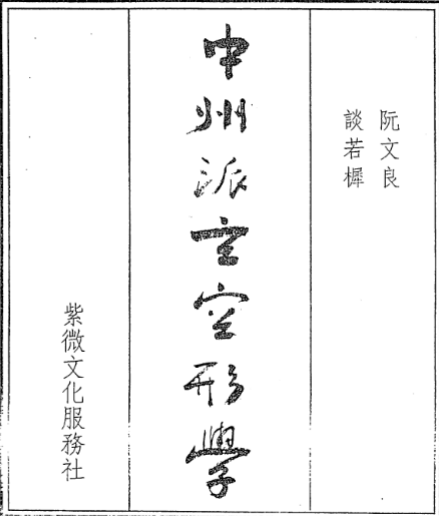 阮文良
談若樨
中州派玄空形學
紫微文化服務社